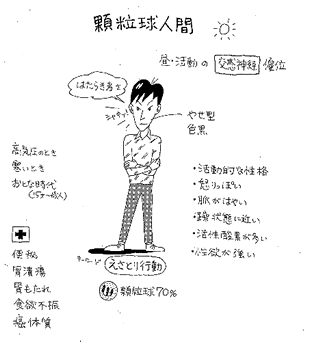 顆粒球人間
昼・活動の 交感神経 優位
はたらき者さ
シャキッ
やせ型
色黒
高気圧のとき
寒いとき
おとな時代
・活動的な性格
・怒りっぽい
・脈がはやい
・躁状態に近い
・活性酸素が多い
・性欲が強い
便秘
胃潰瘍
胃もたれ
食欲不振
癌体質
えさとり行動
顆粒球70%